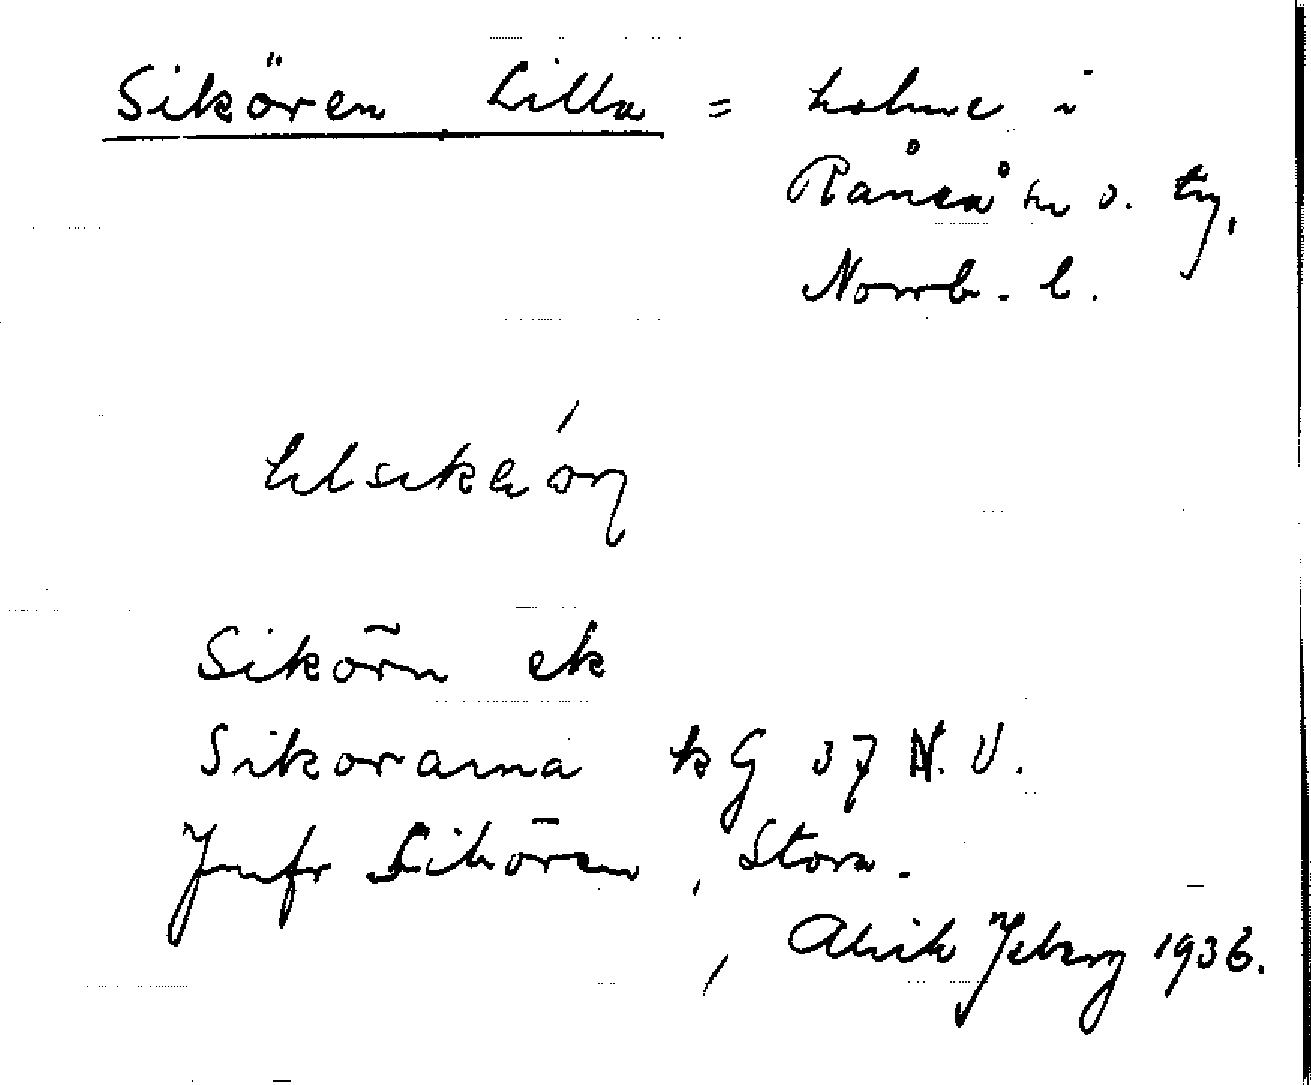 Sikören Lilla = holme i
Råneå sn o. tg,
Norrb. l.
Sikörn ek
Sikorarna kG 37 N.V.
Jmfr Sikören, Stora.
Alrik 1936.